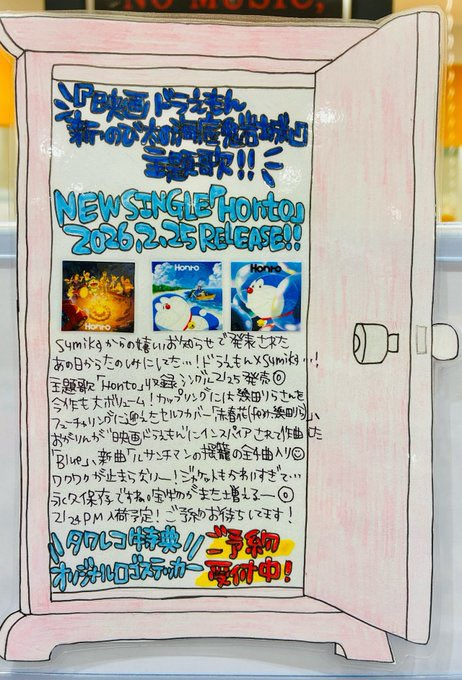 NO MUSIC,
「映画ドラえもん
新・のび太の海底鬼岩城」
主題歌!!
NEW SINGLE『Honto』
2026.2.25 RELEASE!!
Honto
Honto
Honto
sumikaからの嬉しいお知らせで発表された
あの日からたのしみにしてた…!ドラえもん×sumika…!
主題歌「Honto」収録シングル2/25発売◎
今作も大ボリューム!カップリングには幾田りらさんを
フューチャリングに迎えたセルフカバー「春夏秋冬(feat.幾田りら)」、
おがりんが"映画ドラえもん"にインスパイアされて作曲した
「Blue」、新曲「ルサンチマンの揺籠」の全4曲入り
ワクワクが止まらなりー!ジャケットもかわいすぎて…
永久保存ですね。宝物がまた増えるー◎
2/24PM入荷予定!ご予約お待ちしてます!
タワレコ特典
オリジナルロゴステッカー
ご予約
受付中!